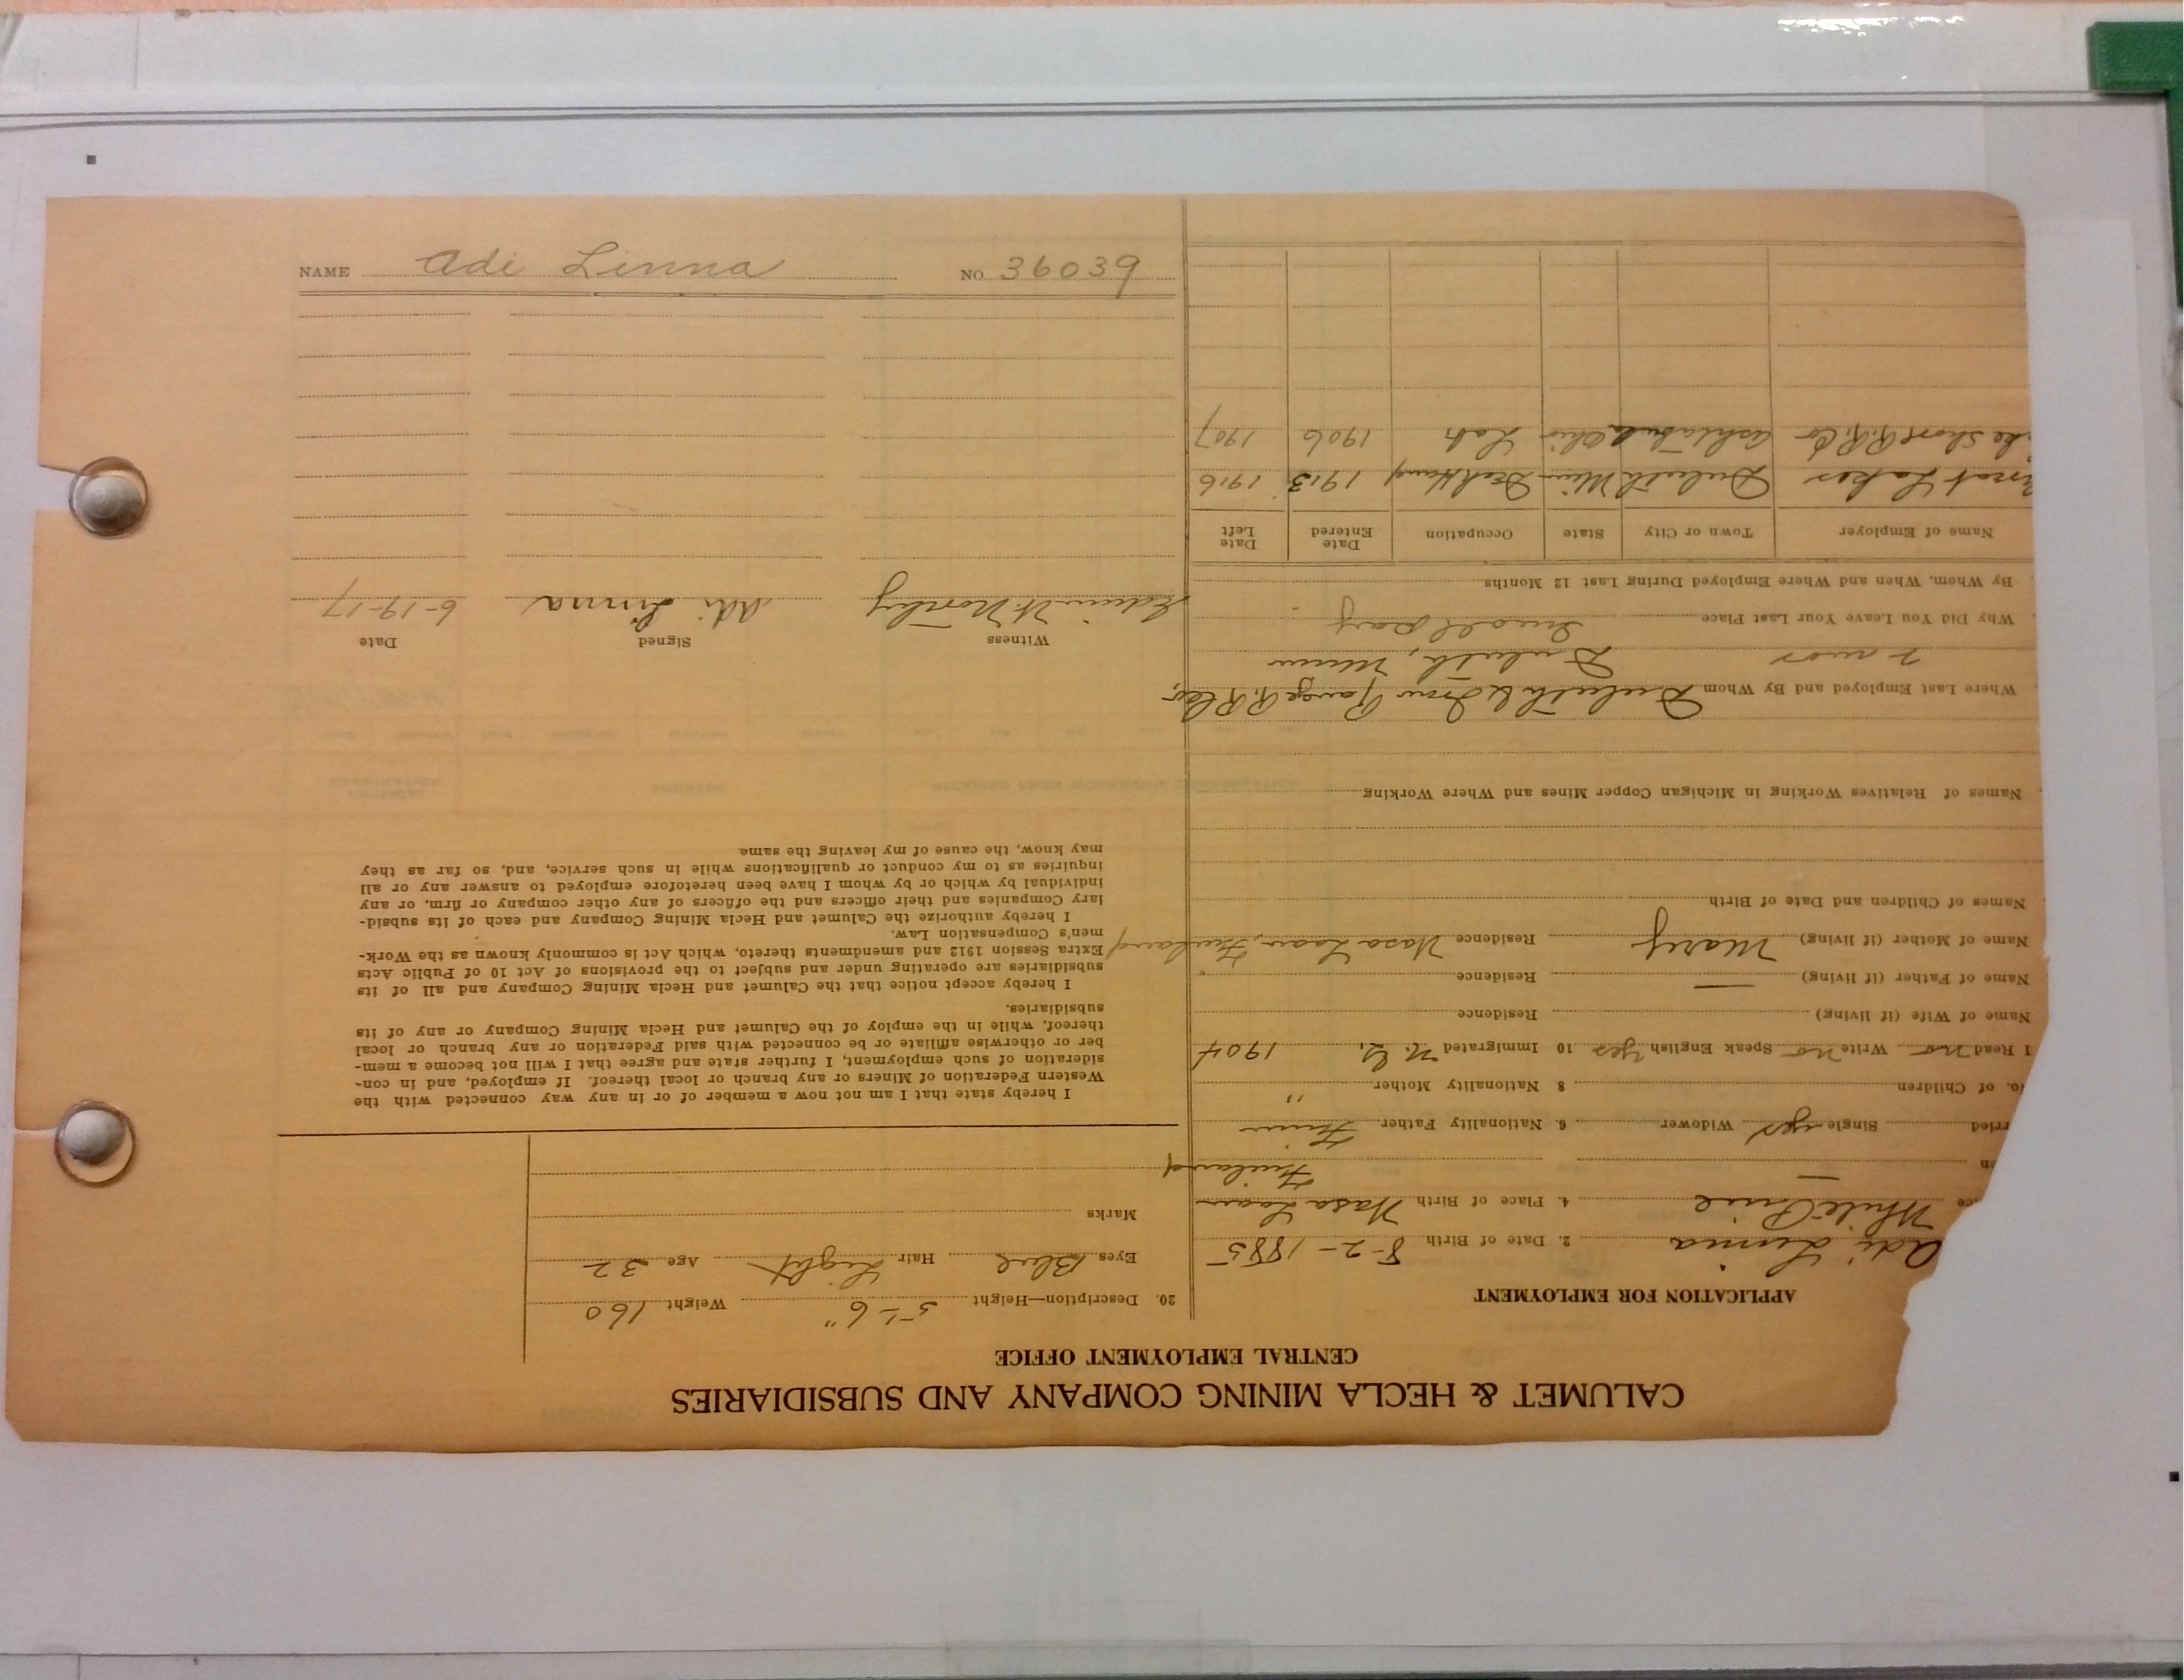 NAME Adi Linna NO. 36039
CALUMET & HECLA MINING COMPANY AND SUBSIDIARIES
CENTRAL EMPLOYMENT OFFICE
APPLICATION FOR EMPLOYMENT
Adi Linna 2. Date of Birth 8-2-1885
White Pine 4. Place of Birth Wasa Laan
Finland
Single yes Widower 6. Nationality Father Finn
of Children 8 Nationality Mother "
Read no Write no Speak English yes 10 Immigrated U.S. 1904
Name of Wife (if living) Residence
Name of Father (if living) — Residence
Name of Mother (if living) Mary Residence Wasa Laan, Finland
Names of Children and Date of Birth
Names of Relatives Working in Michigan Copper Mines and Where Working
Where Last Employed and By Whom Duluth & Iron Range R.R. Co.,
2 mos Duluth, Minn
Why Did You Leave Your Last Place Small pay
By Whom, When and Where Employed During Last 12 Months
Name of Employer Town or City State Occupation Date Entered Date Left
Lakes Duluth Min Deck Hand 1913 1916
Shore R.R. Co Ashtabula Ohio Lab 1906 1907
20. Description—Height 5'-6" Weight 160
Eyes Blue Hair Light Age 32
Marks
I hereby state that I am not now a member of or in any way connected with the
Western Federation of Miners or any branch or local thereof. If employed, and in con-
sideration of such employment, I further state and agree that I will not become a mem-
ber or otherwise affiliate or be connected with said Federation or any branch or local
thereof, while in the employ of the Calumet and Hecla Mining Company or any of its
subsidiaries.
I hereby accept notice that the Calumet and Hecla Mining Company and all of its
subsidiaries are operating under and subject to the provisions of Act 10 of Public Acts
Extra Session 1912 and amendments thereto, which Act is commonly known as the Work-
men's Compensation Law.
I hereby authorize the Calumet and Hecla Mining Company and each of its subsid-
iary Companies and their officers and the officers of any other company or firm, or any
individual by which or by whom I have been heretofore employed to answer any or all
inquiries as to my conduct or qualifications while in such service, and, so far as they
may know, the cause of my leaving the same.
Witness Signed Date
Edwin W. Adi Linna 6-19-17